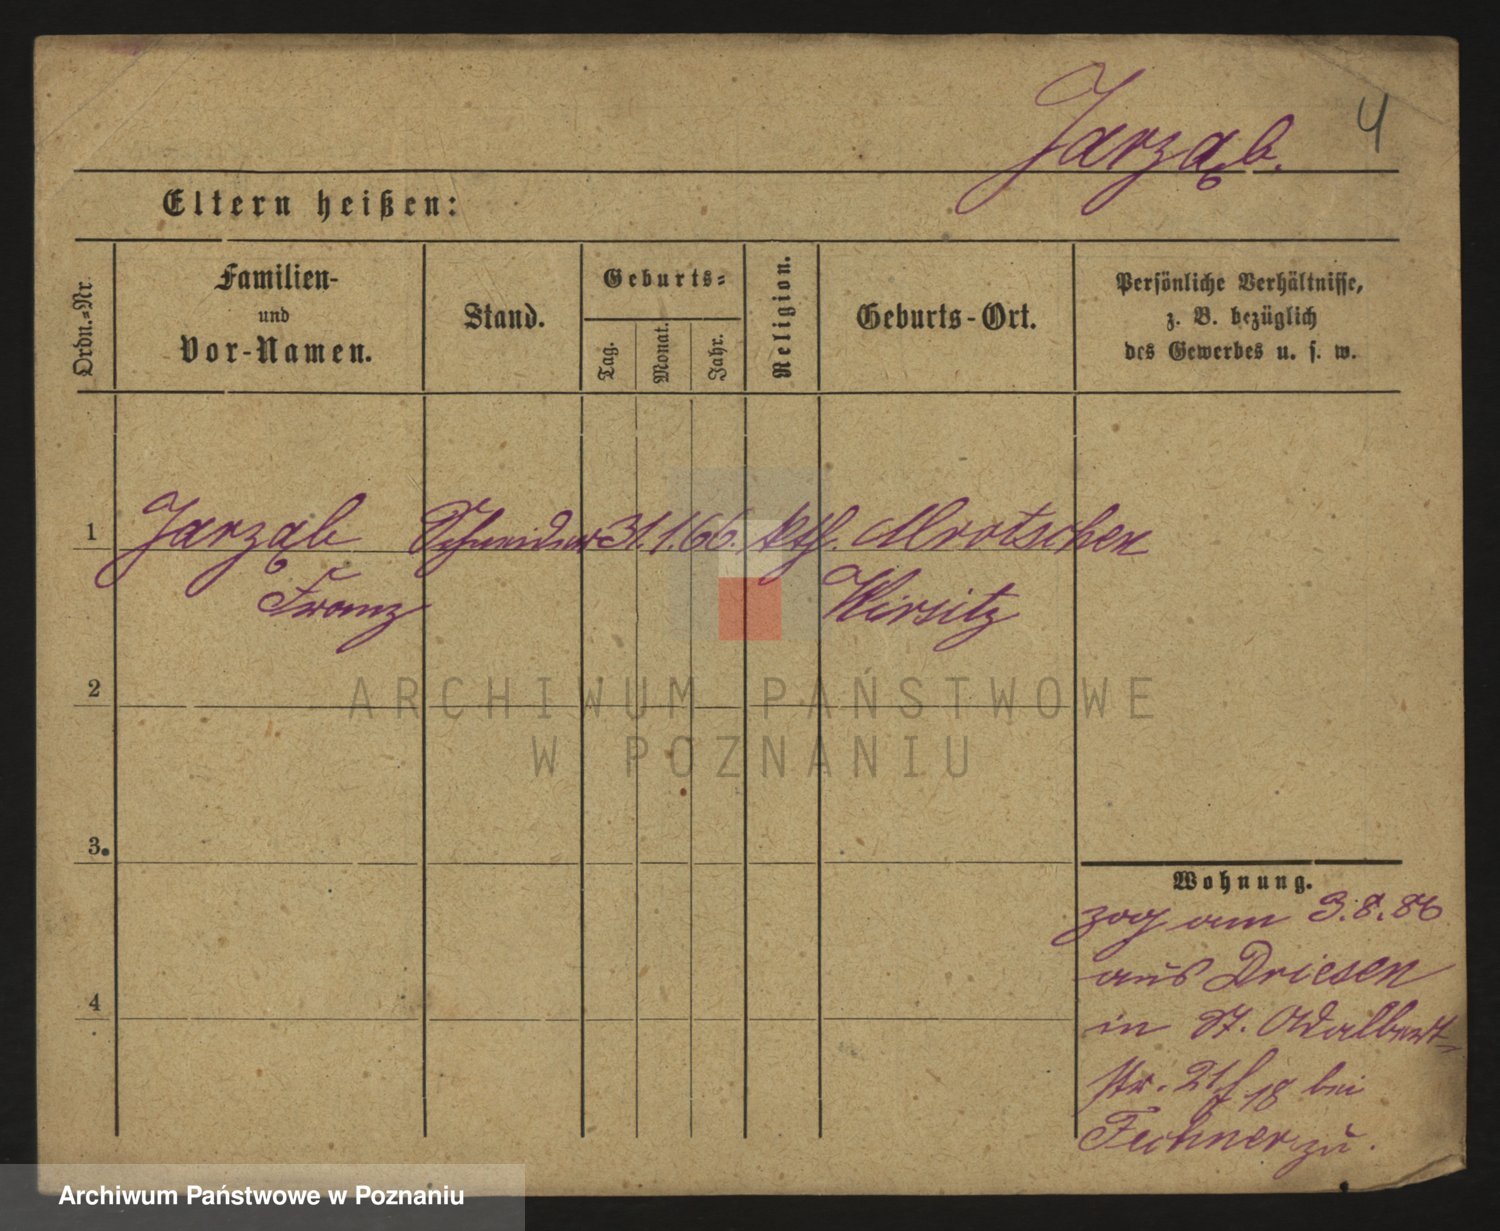 Jarząb.
4
Eltern heißen:
Ordn.-Nr.
Familien-
und
Vor-Namen.
Stand.
Geburts-
Tag.
Monat.
Jahr.
Religion.
Geburts-Ort.
Persönliche Verhältnisse,
z. B. bezüglich
des Gewerbes u. s. w.
1
Jarząb Schneider 31. 1. 66. kth. Mrotschen
Franz Wirsitz
2
ARCHIWUM PAŃSTWOWE
W POZNANIU
3.
Wohnung.
zog am 3.8.86
aus Driesen
in St. Adalbert-
str. 21/18 bei
Fechner zu.
4
Archiwum Państwowe w Poznaniu